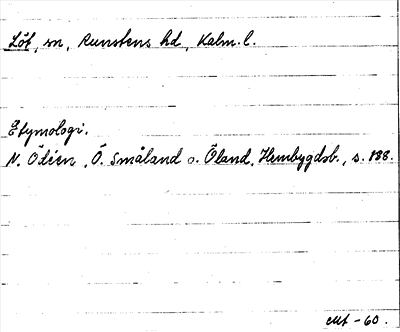 Löt, sn, Runstens hd, Kalm. l.
Etymologi.
N. Ödéen, Ö. Småland o. Öland, Hembygdsb., s. 188.
-60.